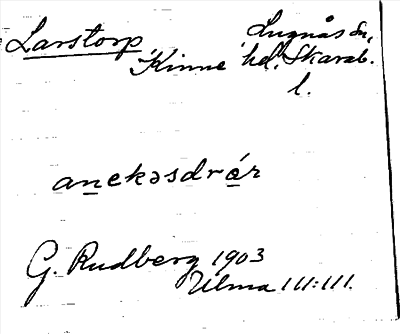 Larstorp Lugnås Sn,
Kinne hd. Skarab.
l.
anekəsdrér
G. Rudberg 1903
Ulma 111:111.